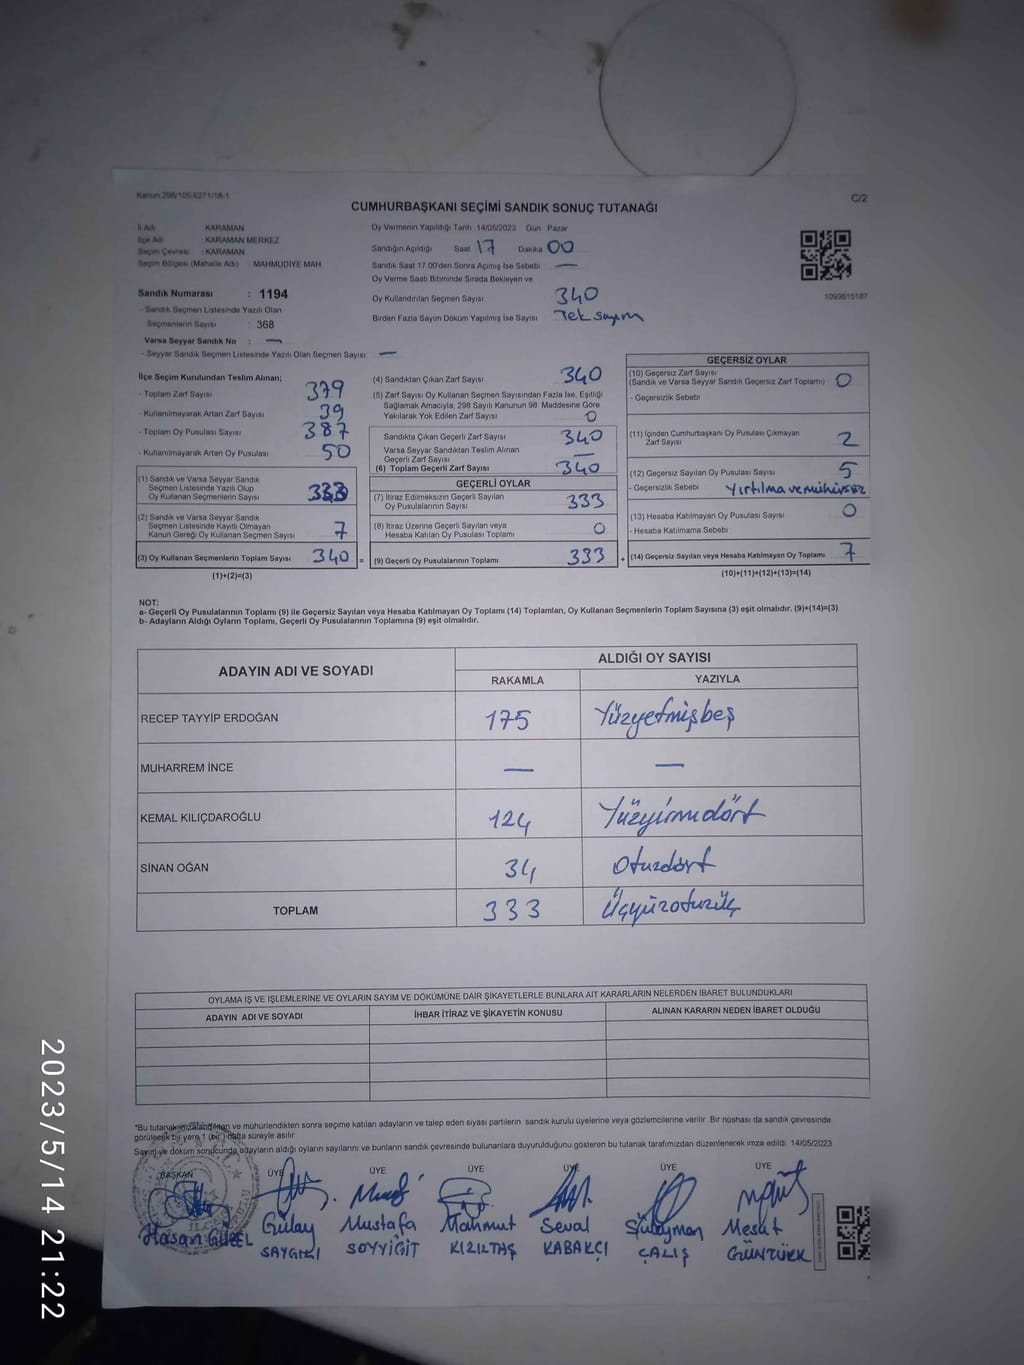 Kanun:298/105-6271/18-1
C/2
CUMHURBAŞKANI SEÇİMİ SANDIK SONUÇ TUTANAĞI
İl Adı : KARAMAN
İlçe Adı : KARAMAN MERKEZ
Seçim Çevresi : KARAMAN
Seçim Bölgesi (Mahalle Adı) : MAHMUDİYE MAH
Sandık Numarası : 1194
- Sandık Seçmen Listesinde Yazılı Olan
Seçmenlerin Sayısı : 368
Varsa Seyyar Sandık No : —
- Seyyar Sandık Seçmen Listesinde Yazılı Olan Seçmen Sayısı : —
Oy Vermenin Yapıldığı Tarih :14/05/2023 Gün Pazar
Sandığın Açıldığı Saat 17 Dakika 00
Sandık Saat 17.00'den Sonra Açımış İse Sebebi : —
Oy Verme Saati Bitiminde Sırada Bekleyen ve
Oy Kullandırılan Seçmen Sayısı 340
Birden Fazla Sayım Döküm Yapılmış İse Sayısı Tek sayım
1093615187
İlçe Seçim Kurulundan Teslim Alınan;
- Toplam Zarf Sayısı 379
- Kullanılmayarak Artan Zarf Sayısı 39
- Toplam Oy Pusulası Sayısı 387
- Kullanılmayarak Artan Oy Pusulası 50
(1) Sandık ve Varsa Seyyar Sandık
Seçmen Listesinde Yazılı Olup
Oy Kullanan Seçmenlerin Sayısı 333
(2) Sandık ve Varsa Seyyar Sandık
Seçmen Listesinde Kayıtlı Olmayan
Kanun Gereği Oy Kullanan Seçmen Sayısı 7
(3) Oy Kullanan Seçmenlerin Toplam Sayısı 340 =
(1)+(2)=(3)
(4) Sandıktan Çıkan Zarf Sayısı 340
(5) Zarf Sayısı Oy Kullanan Seçmen Sayısından Fazla İse, Eşitliği
Sağlamak Amacıyla, 298 Sayılı Kanunun 98. Maddesine Göre
Yakılarak Yok Edilen Zarf Sayısı 0
Sandıkta Çıkan Geçerli Zarf Sayısı 340
Varsa Seyyar Sandıktan Teslim Alınan
Geçerli Zarf Sayısı —
(6) Toplam Geçerli Zarf Sayısı 340
GEÇERLİ OYLAR
(7) İtiraz Edilmeksizin Geçerli Sayılan
Oy Pusulalarının Sayısı 333
(8) İtiraz Üzerine Geçerli Sayılan veya
Hesaba Katılan Oy Pusulası Toplamı 0
(9) Geçerli Oy Pusulalarının Toplamı 333 +
GEÇERSİZ OYLAR
(10) Geçersiz Zarf Sayısı
(Sandık ve Varsa Seyyar Sandık Geçersiz Zarf Toplamı) 0
- Geçersizlik Sebebi
(11) İçinden Cumhurbaşkanı Oy Pusulası Çıkmayan
Zarf Sayısı 2
(12) Geçersiz Sayılan Oy Pusulası Sayısı 5
- Geçersizlik Sebebi Yırtılma ve mühürsüz
(13) Hesaba Katılmayan Oy Pusulası Sayısı 0
- Hesaba Katılmama Sebebi
(14) Geçersiz Sayılan veya Hesaba Katılmayan Oy Toplamı 7
(10)+(11)+(12)+(13)=(14)
NOT:
a- Geçerli Oy Pusulalarının Toplamı (9) ile Geçersiz Sayılan veya Hesaba Katılmayan Oy Toplamı (14) Toplamları, Oy Kullanan Seçmenlerin Toplam Sayısına (3) eşit olmalıdır. (9)+(14)=(3)
b- Adayların Aldığı Oyların Toplamı, Geçerli Oy Pusulalarının Toplamına (9) eşit olmalıdır.
ADAYIN ADI VE SOYADI ALDIĞI OY SAYISI
RAKAMLA YAZIYLA
RECEP TAYYİP ERDOĞAN 175 Yüzyetmişbeş
MUHARREM İNCE — —
KEMAL KILIÇDAROĞLU 124 Yüzyirmidört
SİNAN OĞAN 34 Otuzdört
TOPLAM 333 Üçyüzotuzüç
OYLAMA İŞ VE İŞLEMLERİNE VE OYLARIN SAYIM VE DÖKÜMÜNE DAİR ŞİKAYETLERLE BUNLARA AİT KARARLARIN NELERDEN İBARET BULUNDUKLARI
ADAYIN ADI VE SOYADI İHBAR İTİRAZ VE ŞİKAYETİN KONUSU ALINAN KARARIN NEDEN İBARET OLDUĞU
*Bu tutanak imzalandıktan ve mühürlendikten sonra seçime katılan adayların ve talep eden siyasi partilerin sandık kurulu üyelerine veya gözlemcilerine verilir. Bir nüshası da sandık çevresinde
görülecek bir yere 1 (bir) hafta süreyle asılır.
Sayım ve döküm sonucunda adayların aldığı oyların sayılarını ve bunların sandık çevresinde bulunanlara duyurulduğunu gösteren bu tutanak tarafımızdan düzenlenerek imza edildi. 14/05/2023
BAŞKAN ÜYE ÜYE ÜYE ÜYE ÜYE ÜYE
Hasan GÜZEL Gülay Mustafa Mahmut Seval Süleyman Mesut
SAYGILI SOYYİĞİT KIZILTAŞ KABAKÇI ÇALIŞ GÜNTÜRK
2023/5/14 21:22